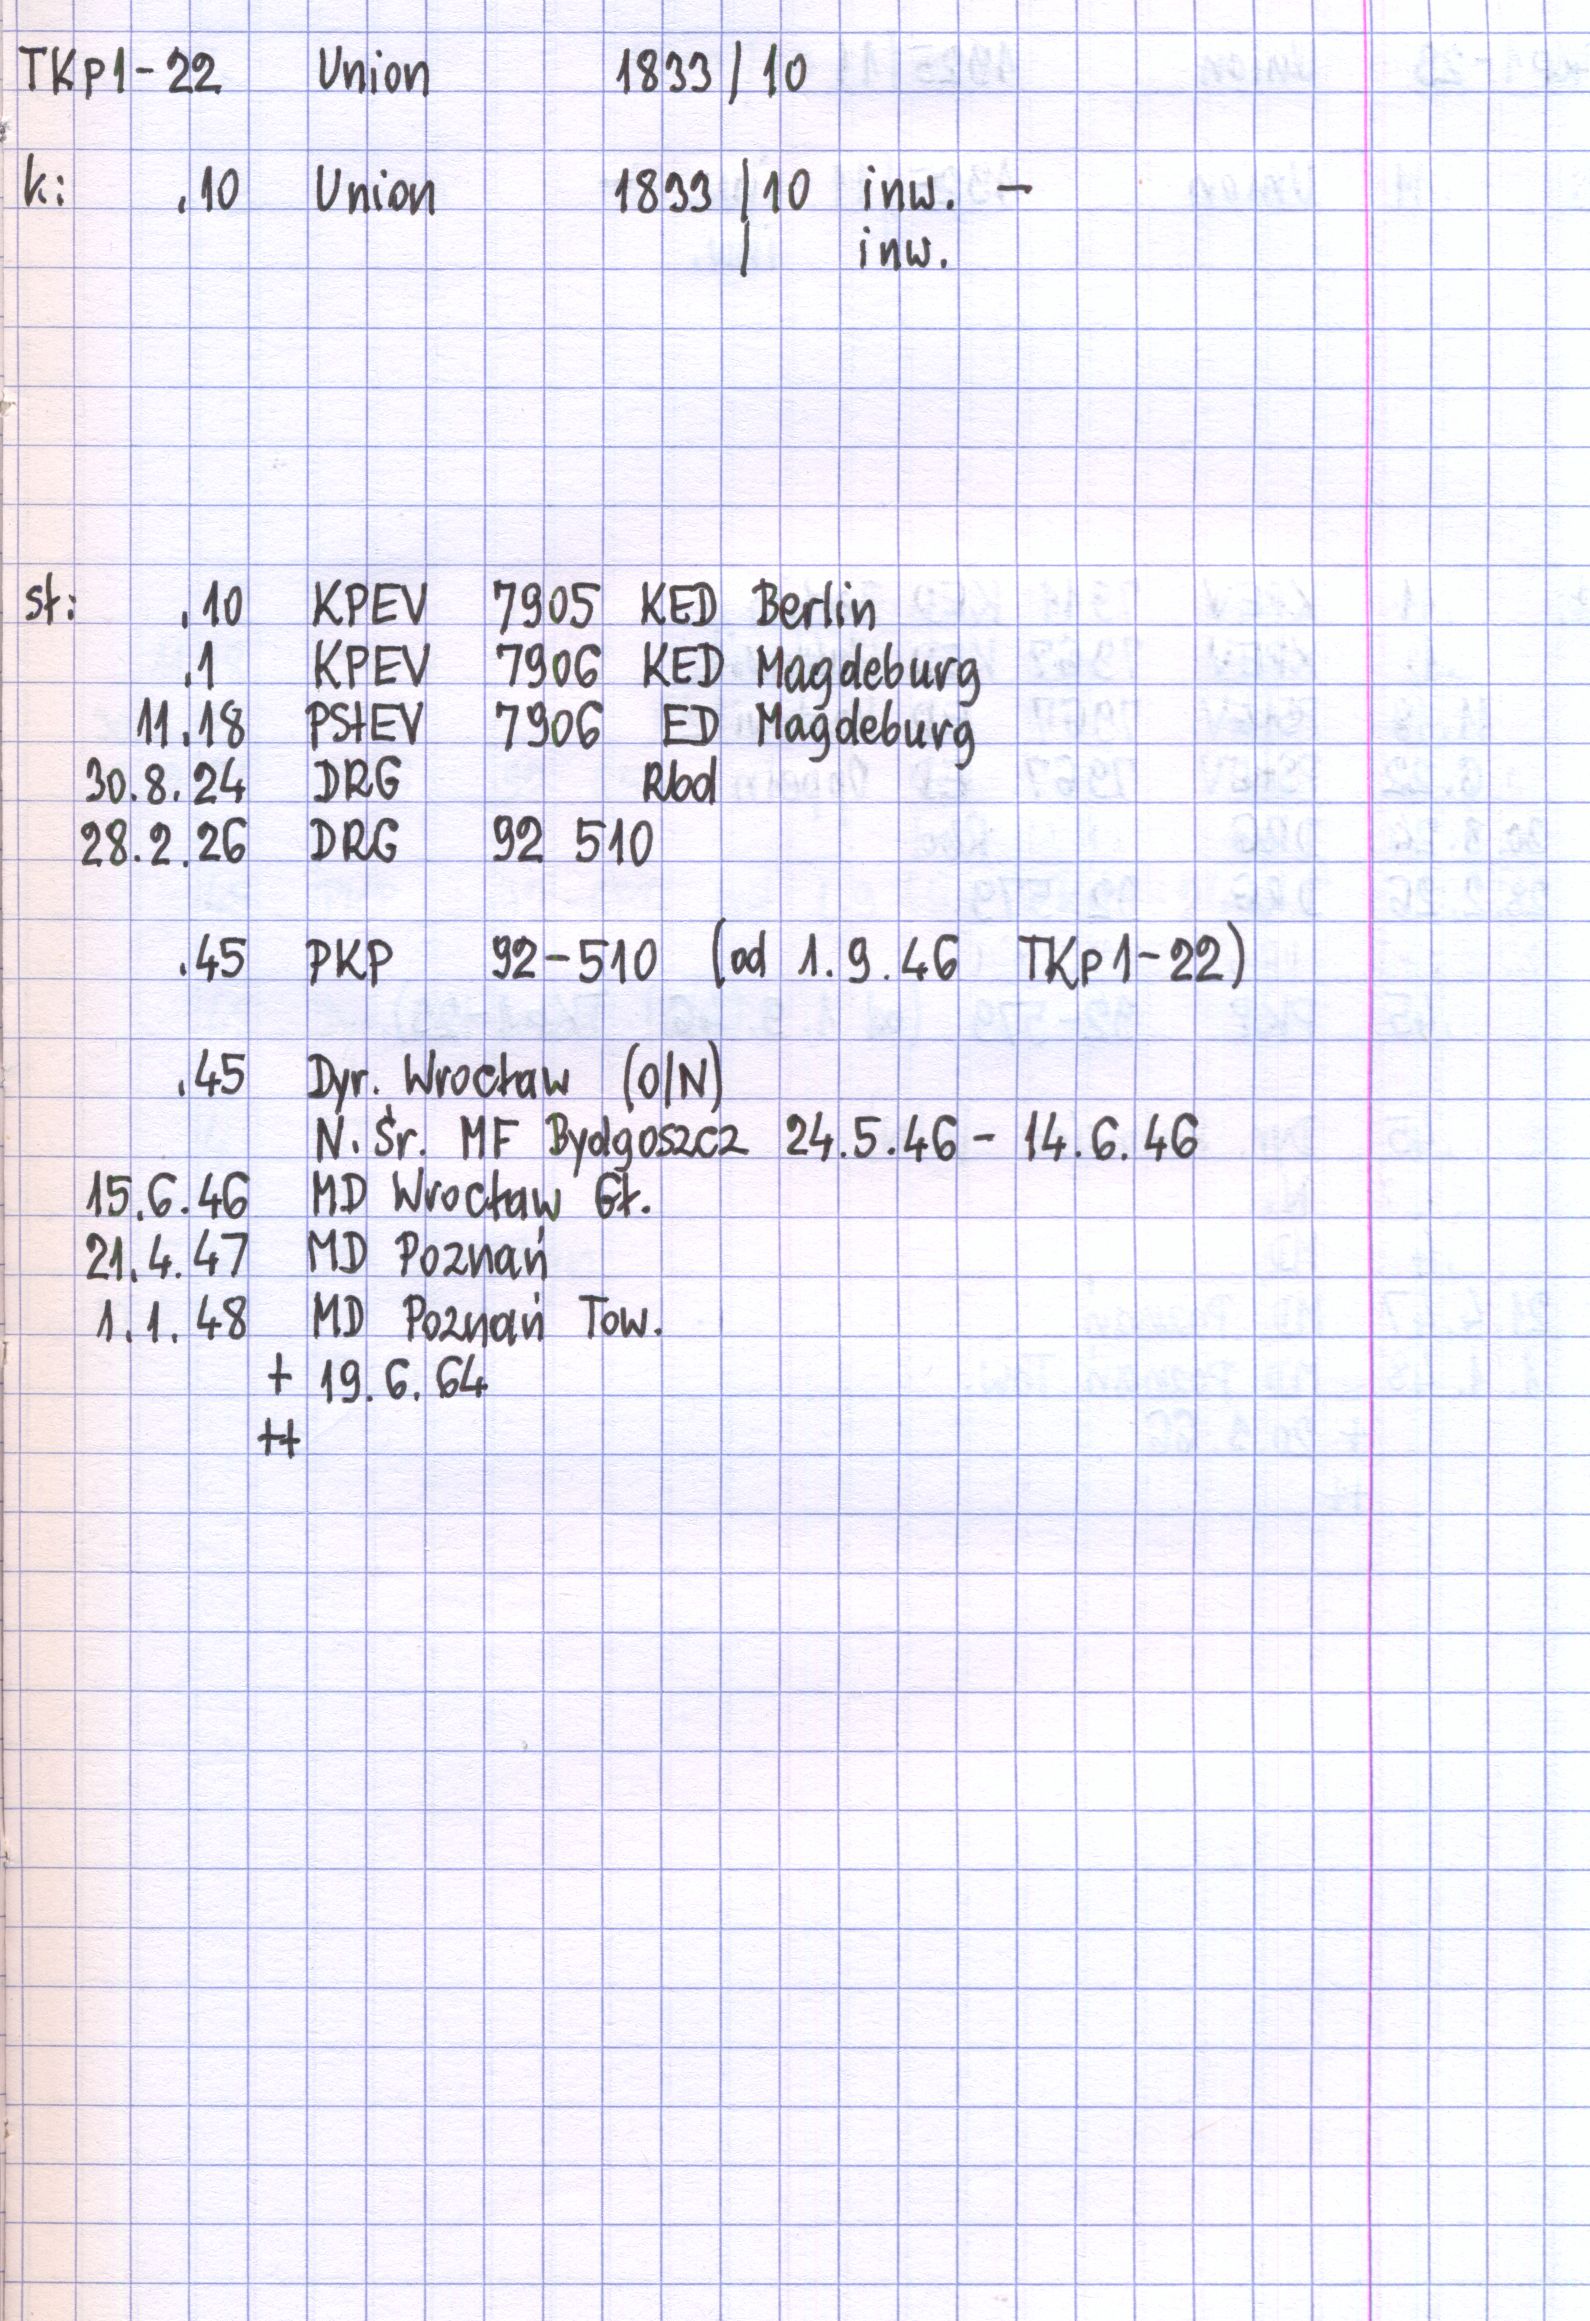 TKp1-22 Union 1833/10
k: .10 Union 1833/10 inw. -
/ inw.
st: .10 KPEV 7905 KED Berlin
.1 KPEV 7906 KED Magdeburg
11.18 PStEV 7906 ED Magdeburg
30.8.24 DRG Rbd
28.2.26 DRG 92 510
.45 PKP 92-510 (od 1.9.46 TKp1-22)
.45 Dyr. Wrocław (O/N)
N. Śr. MF Bydgoszcz 24.5.46 - 14.6.46
15.6.46 MD Wrocław Gł.
21.4.47 MD Poznań
1.1.48 MD Poznań Tow.
+ 19.6.64
++